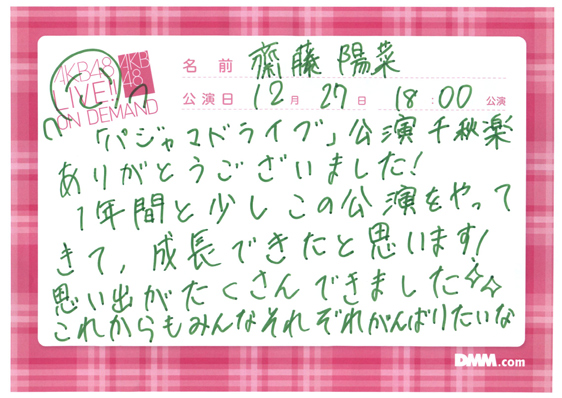 AKB48
LIVE!!
ON DEMAND
AKB
48
名 前 齋藤 陽菜
公演日 12月 27日 18:00 公演
「パジャマドライブ」公演 千秋楽
ありがとうございました!
1年間と少しこの公演をやって
きて、成長できたと思います!
思い出がたくさんできました
これからもみんなそれぞれがんばりたいな
DMM.com